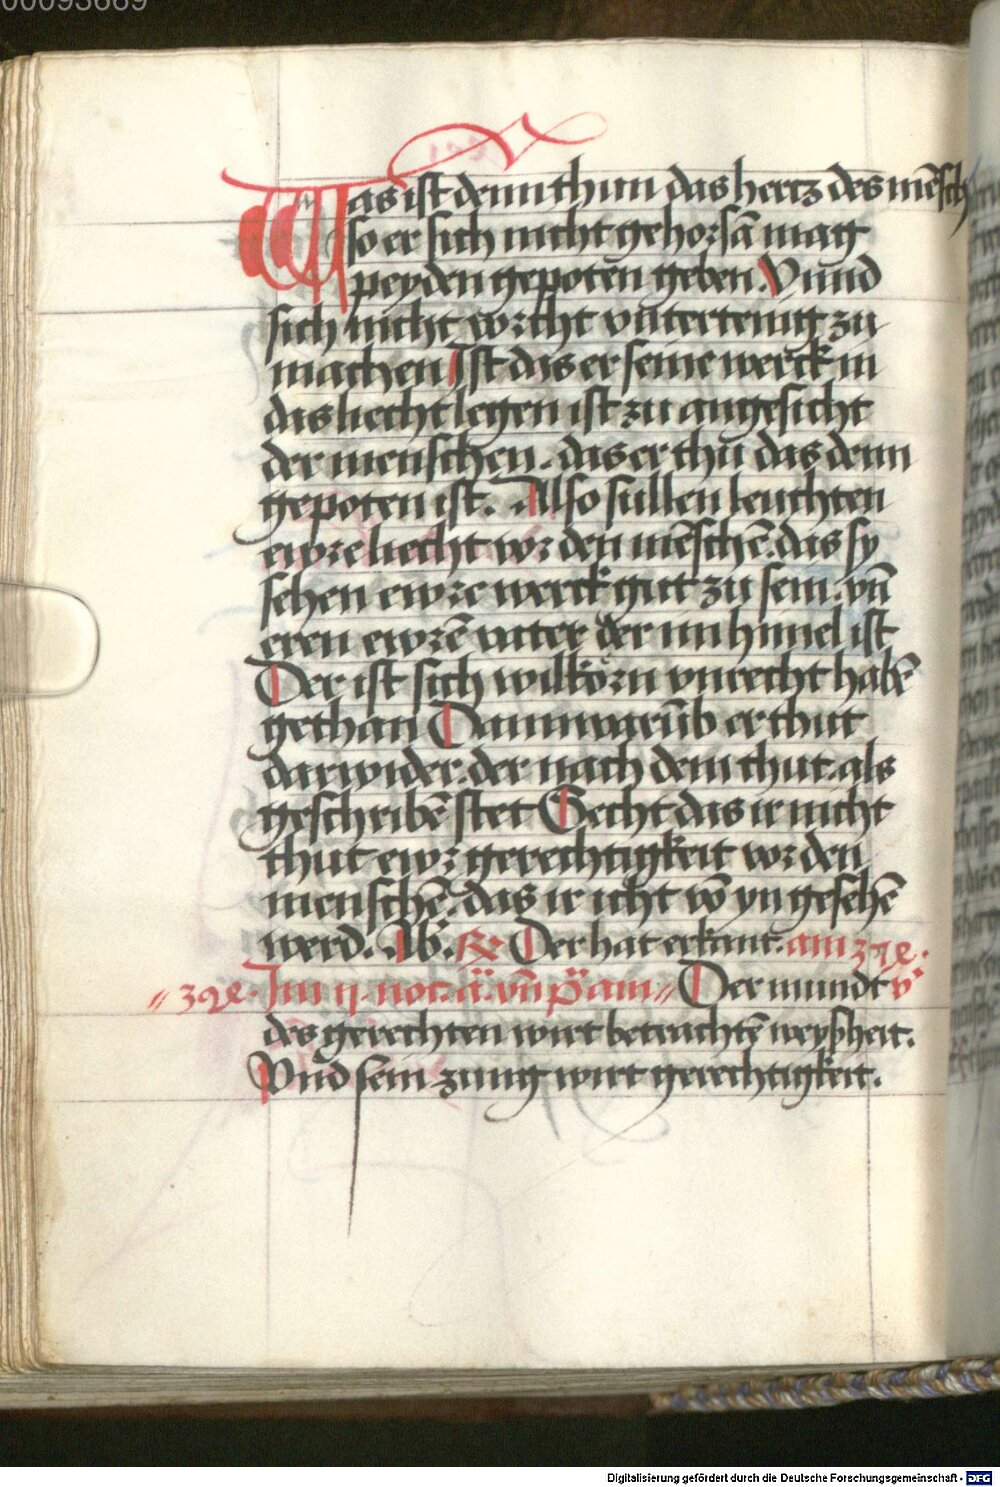 00093669
Was ist denn thun das hertz des mēsch
so er sich nicht gehorsā mag
peyden gepoten geben. Vnnd
sich nicht vorcht vntertenig zu
machen Ist das er seine werck in
das liecht legen ist zu angesicht
der menschen. das er thu das denn
gepoten ist. Also sullen leuchten
ewre liecht vor den mēschē. das sy
sehen ewre werck gut zu sein. vn̄
eren ewrē vater der im himel ist
Der ist sich wilkorn vnrecht habē
gethan Dann warūb er thut
darwider. der nach dem thut. als
geschribē stet Secht das ir nicht
thut ewr gerechtigkeit vor den
menschē. das ir icht vō yn gesehē
werd. Ab. R Der hat erkant. am
Im not. vn̄ am Der mundt v
des gerechten wirt betrachtē weyßheit.
Vnd sein zung wirt gerechtigkeit.
Digitalisierung gefördert durch die Deutsche Forschungsgemeinschaft - DFG